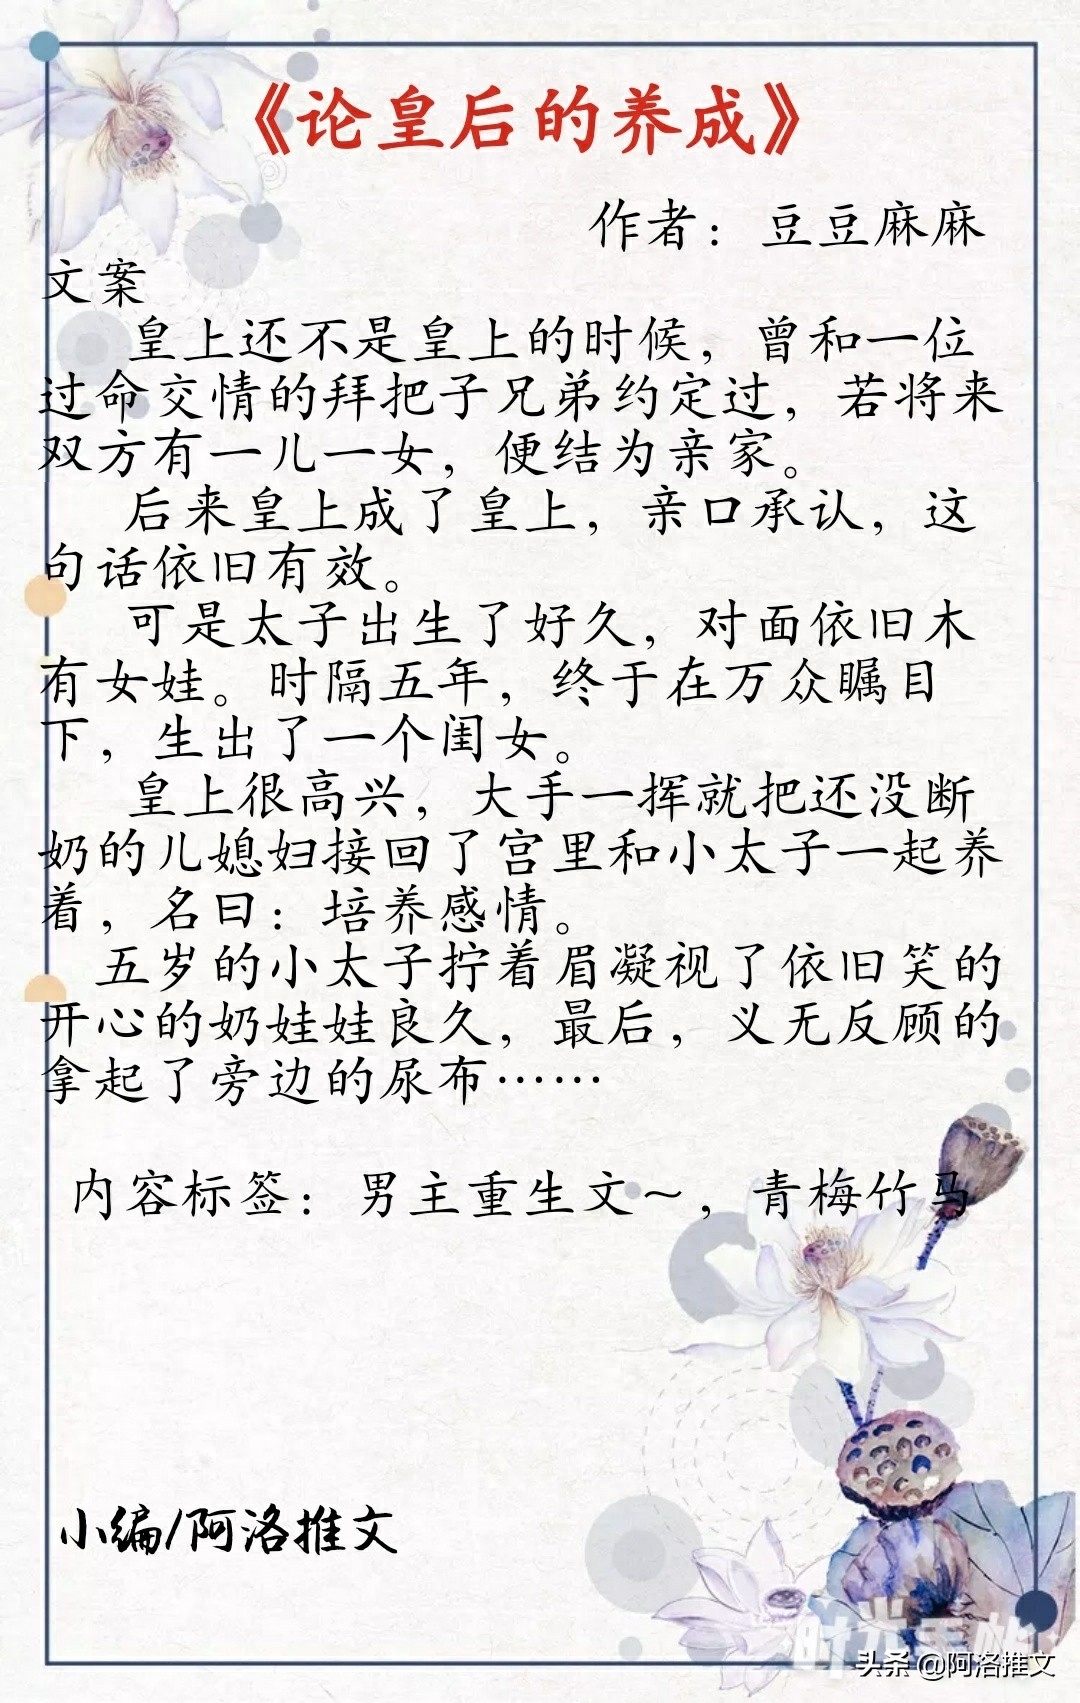 《论皇后的养成》
作者：豆豆麻麻
文案
皇上还不是皇上的时候，曾和一位
过命交情的拜把子兄弟约定过，若将来
双方有一儿一女，便结为亲家。
后来皇上成了皇上，亲口承认，这
句话依旧有效。
可是太子出生了好久，对面依旧木
有女娃。时隔五年，终于在万众瞩目
下，生出了一个闺女。
皇上很高兴，大手一挥就把还没断
奶的儿媳妇接回了宫里和小太子一起养
着，名曰：培养感情。
五岁的小太子拧着眉凝视了依旧笑的
开心的奶娃娃良久，最后，义无反顾的
拿起了旁边的尿布……
内容标签：男主重生文～，青梅竹马
小编/阿洛推文
头条 @阿洛推文